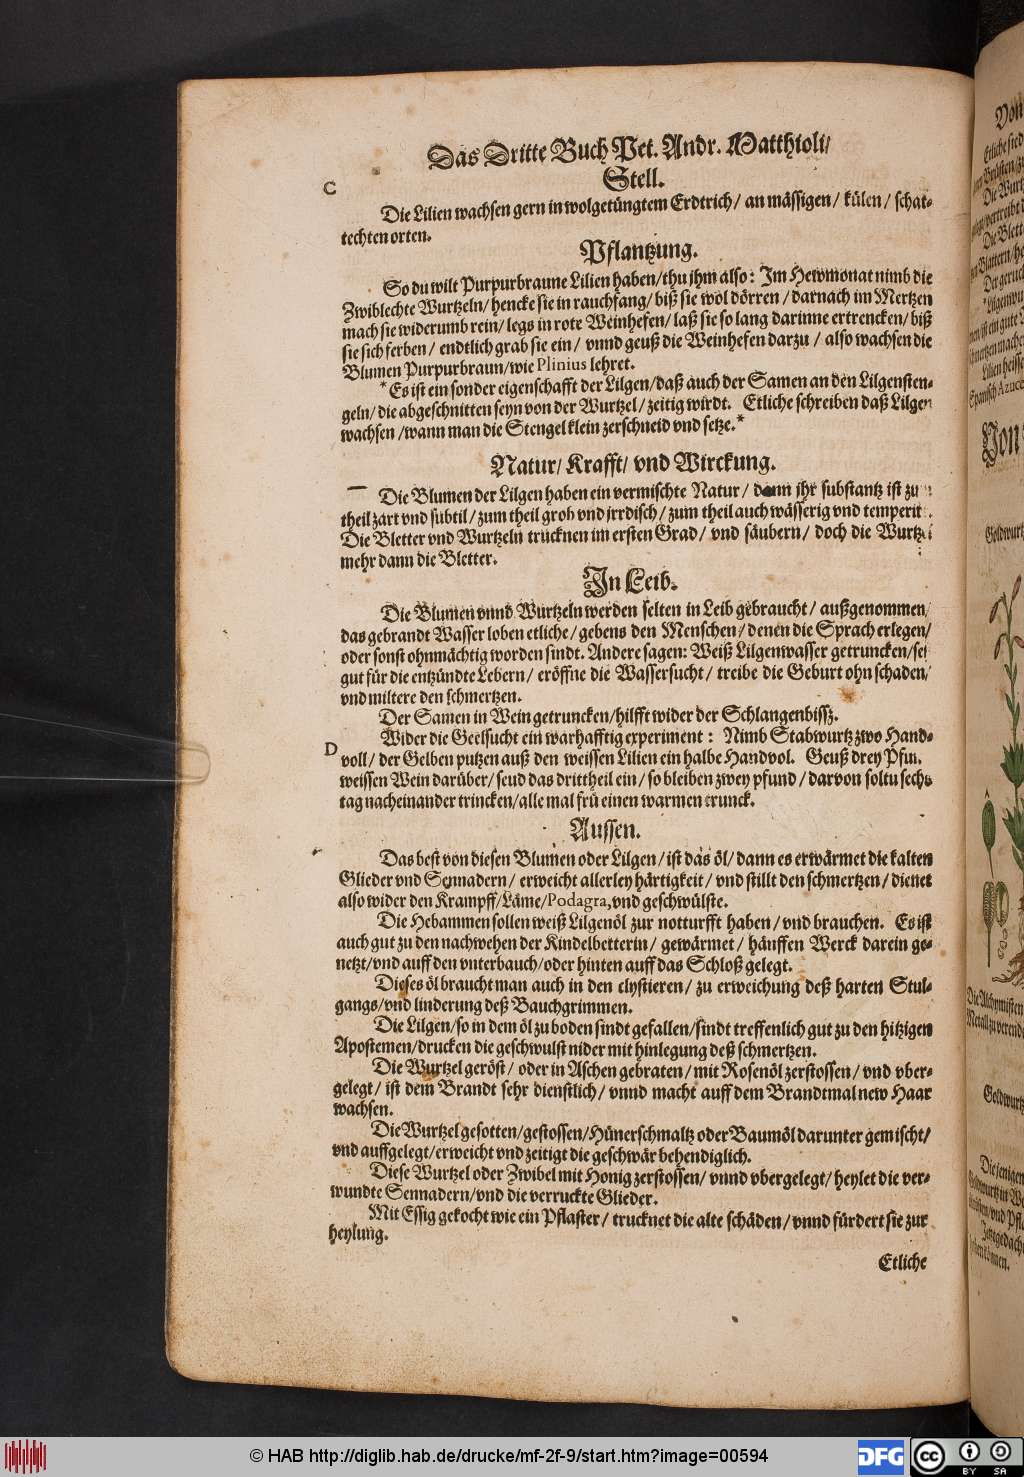 Das Dritte Buch Pet. Andr. Matthioli/
Stell.
C
Die Lilien wachsen gern in wolgetüngtem Erdtrich/ an mässigen/ külen/ schat-
techten orten.
Pflantzung.
So du wilt Purpurbraune Lilien haben/thu jhm also: Im Hewmonat nimb die
Zwiblechte Wurtzeln/ hencke sie in rauchfang/ biß sie wol dörren/ darnach im Mertzen
mach sie widerumb rein/ legs in rote Weinhefen/ laß sie so lang darinne ertrencken/ biß
sie sich ferben/ endtlich grab sie ein/ vnnd geuß die Weinhefen darzu/ also wachsen die
Blumen Purpurbraun/wie Plinius lehret.
*Es ist ein sonder eigenschafft der Lilgen/daß auch der Samen an den Lilgensten-
geln/ die abgeschnitten seyn von der Wurtzel/ zeitig wirdt. Etliche schreiben daß Lilgen
wachsen/wann man die Stengel klein zerschneid vnd setze.*
Natur/ Krafft/ vnd Wirckung.
Die Blumen der Lilgen haben ein vermischte Natur/ dann jhr substantz ist zu
theil zart vnd subtil/ zum theil grob vnd jrrdisch/ zum theil auch wässerig vnd temperit.
Die Bletter vnd Wurtzeln trucknen im ersten Grad/ vnd säubern/ doch die Wurtzel
mehr dann die Bletter.
In Leib.
Die Blumen vnnd Wurtzeln werden selten in Leib gebraucht/ außgenommen/
das gebrandt Wasser loben etliche/ gebens den Menschen/ denen die Sprach erlegen/
oder sonst ohnmächtig worden sindt. Andere sagen: Weiß Lilgenwasser getruncken/sei
gut für die entzündte Lebern/ eröffne die Wassersucht/ treibe die Geburt ohn schaden/
vnd miltere den schmertzen.
Der Samen in Wein getruncken/hilfft wider der Schlangenbissz.
D
Wider die Geelsucht ein warhafftig experiment: Nimb Stabwurtz zwo Hand-
voll/ der Gelben putzen auß den weissen Lilien ein halbe Handvol. Geuß drey Pfun.
weissen Wein darüber/ seud das drittheil ein/ so bleiben zwey pfund/ darvon soltu sechs
tag nacheinander trincken/alle mal frü einen warmen trunck.
Aussen.
Das best von diesen Blumen oder Lilgen/ ist das öl/ dann es erwärmet die kalten
Glieder vnd Sennadern/ erweicht allerley härtigkeit/ vnd stillt den schmertzen/ dienet
also wider den Krampff/Läme/Podagra,vnd geschwülste.
Die Hebammen sollen weiß Lilgenöl zur notturfft haben/ vnd brauchen. Es ist
auch gut zu den nachwehen der Kindelbetterin/ gewärmet/ hänffen Werck darein ge-
netzt/vnd auff den vnterbauch/oder hinten auff das Schloß gelegt.
Dieses öl braucht man auch in den clystieren/ zu erweichung deß harten Stul-
gangs/vnd linderung deß Bauchgrimmen.
Die Lilgen/so in dem öl zu boden sindt gefallen/sindt treffenlich gut zu den hitzigen
Apostemen/drucken die geschwulst nider mit hinlegung deß schmertzen.
Die Wurtzel geröst/ oder in Aschen gebraten/ mit Rosenöl zerstossen/ vnd vber-
gelegt/ ist dem Brandt sehr dienstlich/ vnnd macht auff dem Brandtmal new Haar
wachsen.
Die Wurtzel gesotten/gestossen/Hünerschmaltz oder Baumöl darunter gemischt/
vnd auffgelegt/erweicht vnd zeitigt die geschwär behendiglich.
Diese Wurtzel oder Zwibel mit Honig zerstossen/ vnnd vbergelegt/ heylet die ver-
wundte Sennadern/vnd die verruckte Glieder.
Mit Essig gekocht wie ein Pflaster/ trucknet die alte schäden/ vnnd fürdert sie zur
heylung.
Etliche
© HAB http://diglib.hab.de/drucke/mf-2f-9/start.htm?image=00594
DFG
cc
BY SA